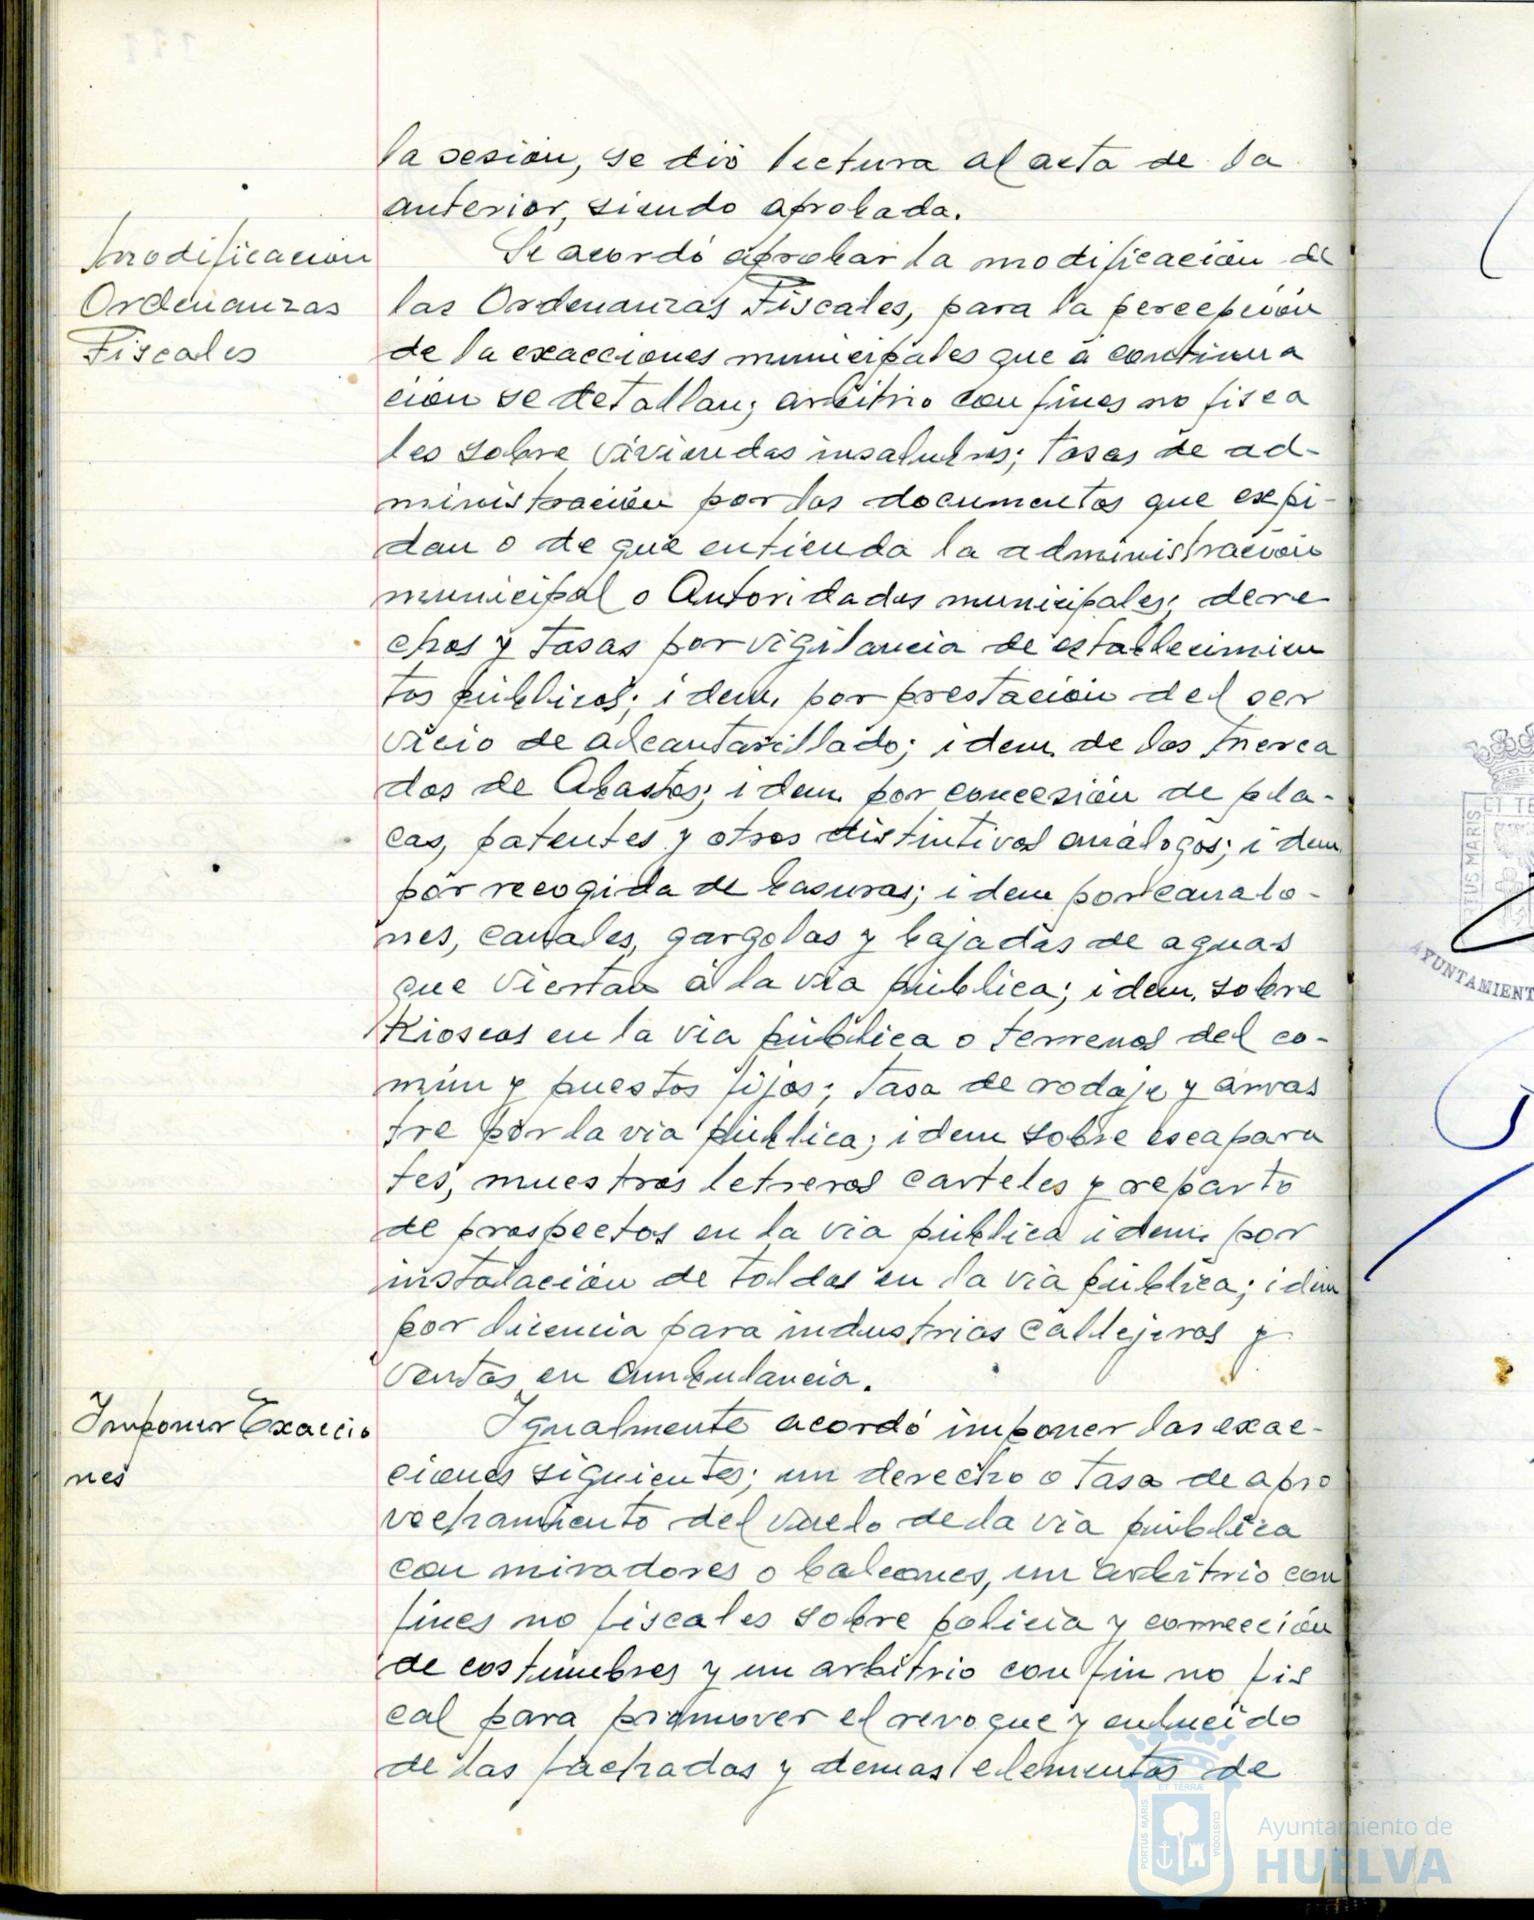 la sesión, se dió lectura al acta de la
anterior, siendo aprobada.
Modificacion
Ordenanzas
Fiscales
Se acordó aprobar la modificación de
las Ordenanzas Fiscales, para la percepción
de la exacciones municipales que á continua
ción se detallan; arbitrio con fines no fisca
les sobre viviendas insalubres; tasas de ad-
ministración por los documentos que expi-
dan o de que entienda la administración
municipal o Autoridades municipales; dere
chos y tasas por vigilancia de establecimien
tos públicos; idem, por prestación del ser
vicio de alcantarillado; idem de los merca
dos de Abastos; idem por concesión de pla-
cas, patentes y otros distintivos análogos; idem
por recogida de basuras; idem por canalo-
nes, canales, gargolas y bajadas de aguas
que viertan á la via pública; idem, sobre
Kioscos en la via pública o terrenos del co-
mún y puestos fijos; tasa de rodaje y arras
tre por la via pública; idem sobre escapara
tes, muestras letreros carteles y reparto
de prospectos en la via pública idem por
instalación de toldos en la via pública; idem
por licencia para industrias callejeras y
ventas en ambulancia.
Imponer Exaccio
nes
Igualmente acordó imponer las exac-
ciones siguientes; un derecho o tasa de apro
vechamiento del vuelo de la via pública
con miradores o balcones, un arbitrio con
fines no fiscales sobre policia y corrección
de costumbres y un arbitrio con fin no fis
cal para promover el revoque y enlucido
de las fachadas y demas elementos de
AYUNTAMIENT
PORTUS MARIS
ET TERRÆ
CUSTODIA
Ayuntamiento de
HUELVA